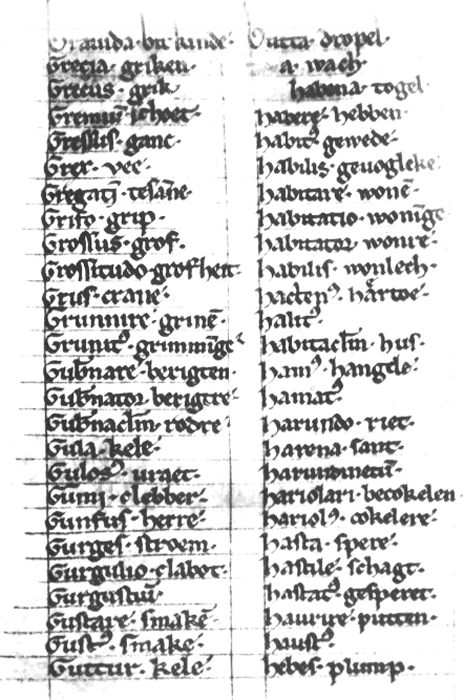 Grauida. bit kinde.
Grecia. griken.
Grecus. grik.
Gremiū schoet.
Gressus. ganc.
Grex. vee.
Gregatī. tesāne.
Grifo. grip.
Grossus. grof.
Grossitudo. grofheit.
Grus. crane.
Grunnire. grinē.
Grunitꝰ. grimmīge.
Gub̄nare. berigten.
Gub̄nator. berigtre.
Gub̄naclm̄. rodre.
Gula. kele.
Gulosꝰ. uraet.
Gumi. clebber.
Gunfus. herre.
Gurges. stroem.
Gurgulio. clabot.
Gurgustiū.
Gustare. smakē.
Gustꝰ. smake.
Guttur. kele.
Gutta. dropel.
a. wach.
habena. togel.
habere. hebben.
habitꝰ. gewede.
habilis. geuogleke.
habitare. wonē.
habitatio. wonīge.
habitator. wonre.
habilis. wonlech.
hactenꝰ. hartoe.
halitꝰ.
habitaclm̄. hus.
hamꝰ. hangele.
hamatꝰ.
harundo. riet.
harena. sant.
harundinetū.
hariolari. becokelen.
hariolꝰ. cokelere.
hasta. spere.
hastile. schagt.
hastatꝰ. gesperet.
haurire. putten.
haustꝰ.
hebes. plump.